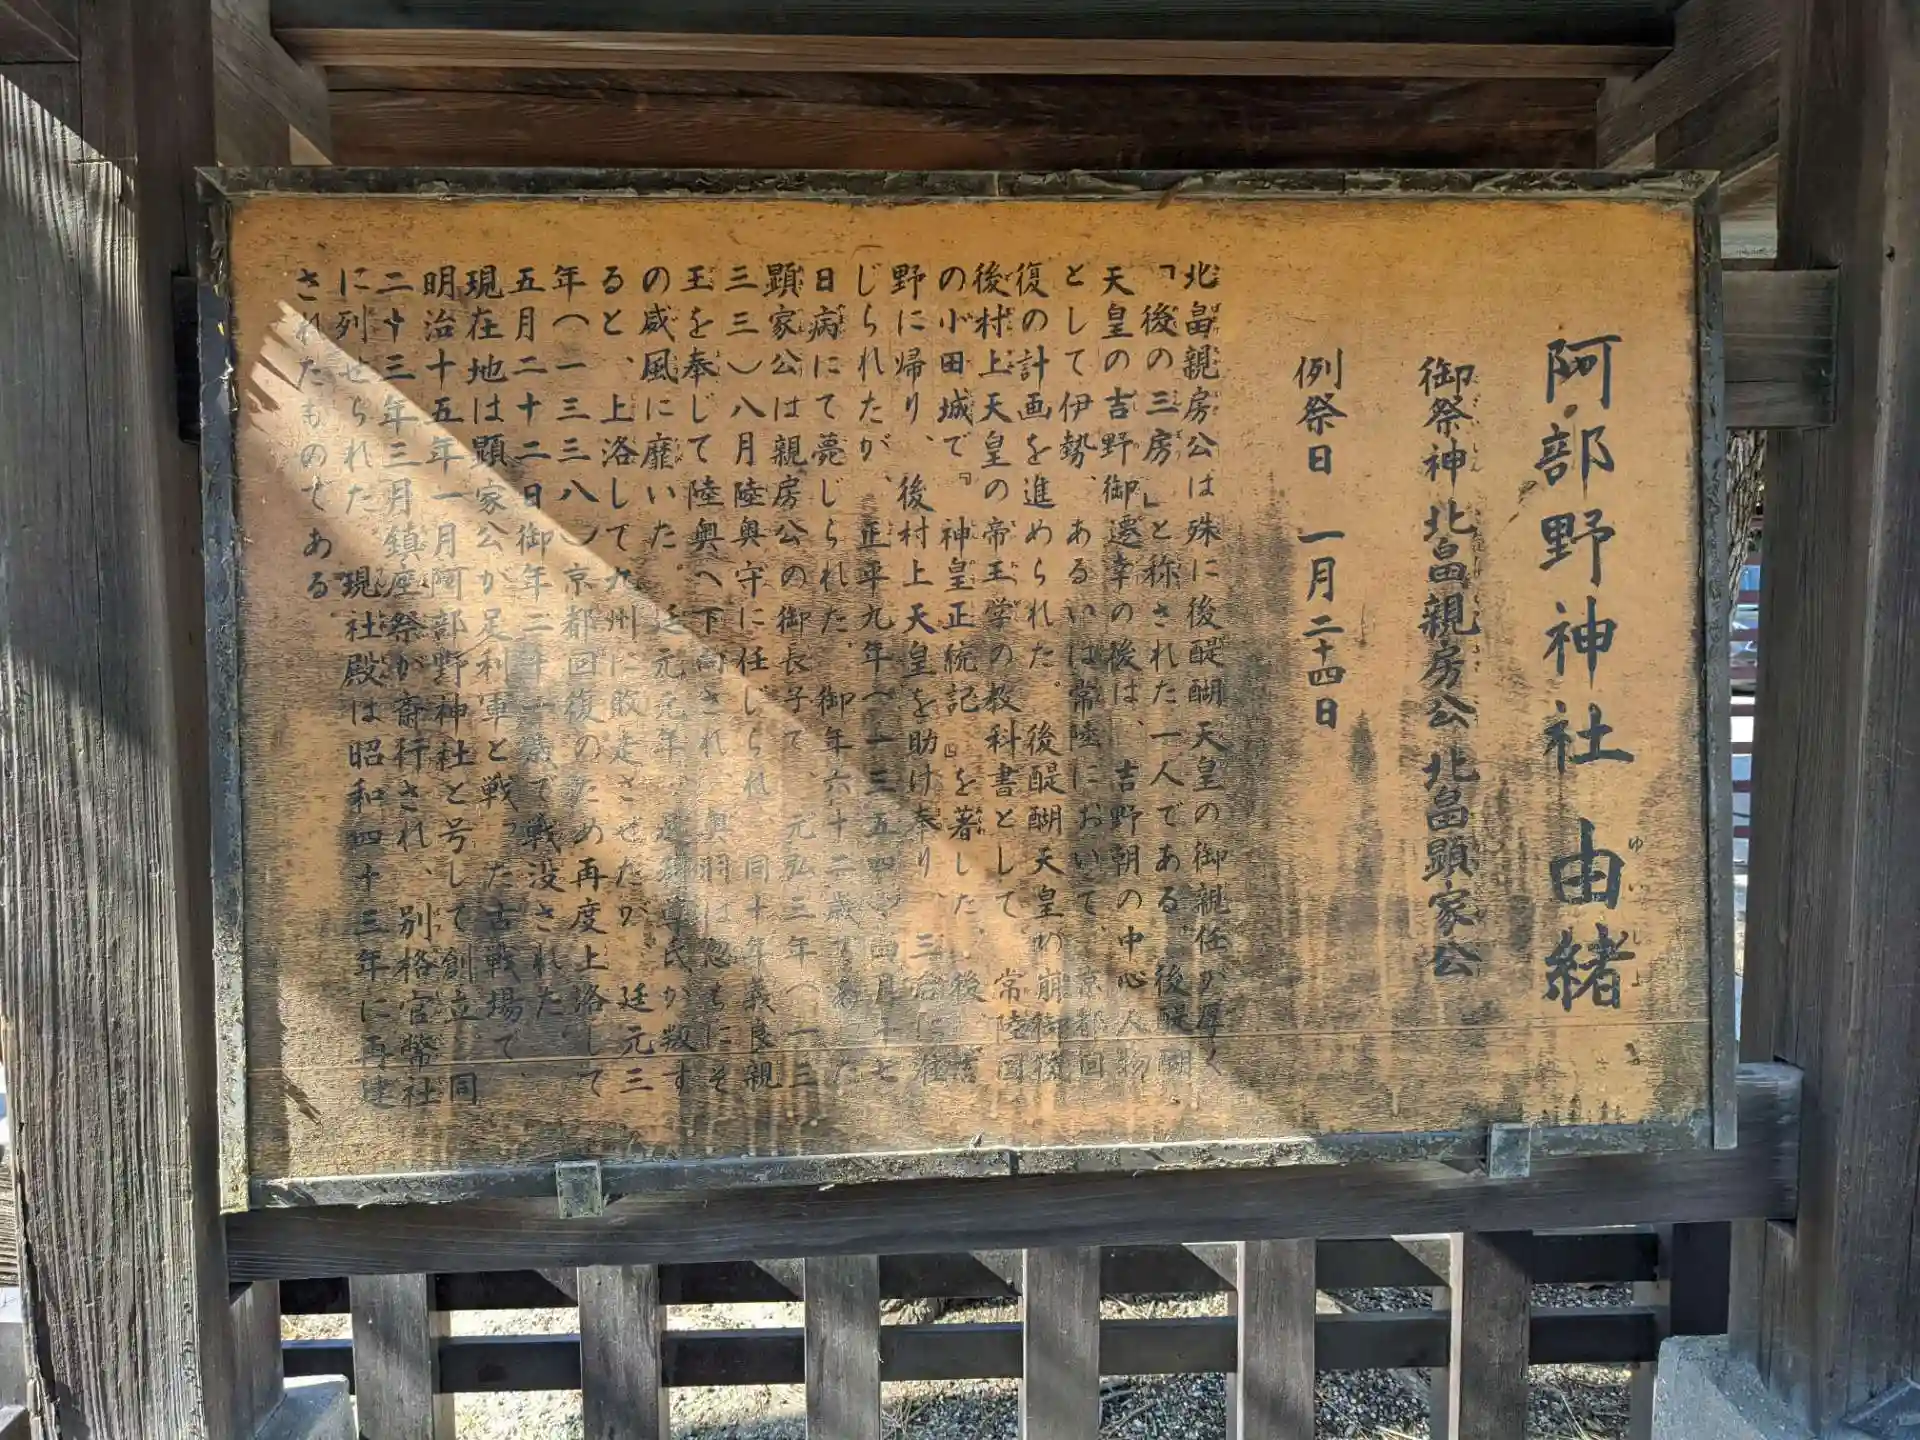 阿部野神社由緒
御祭神 北畠親房公 北畠顕家公
例祭日 一月二十四日
北畠親房公は殊に後醍醐天皇の御親任が厚く
「後の三房」と称された一人である。後醍醐
天皇の吉野御遷幸の後は、吉野朝の中心人物
として伊勢、あるいは常陸において、京都回
復の計画を進められた。後醍醐天皇の崩御後
後村上天皇の帝王学の教科書として、常陸国
の小田城で『神皇正統記』を著した。後、吉
野に帰り、後村上天皇を助け奉り、三后に准
じられたが、正平九年(一三五四)四月十七
日病にて薨じられた。御年六十二歳であった
顕家公は親房公の御長子で、元弘三年(一三
三三)八月陸奥守に任じられ、同十年義良親
王を奉じて陸奥へ下向され、奥羽は忽ちにそ
の威風に靡いた。延元元年、足利尊氏が叛す
ると、上洛して九州に敗走させたが、延元三
年(一三三八)京都回復のため再度上洛して
五月二十二日御年二十一歳で戦没された。
現在地は顕家公が足利軍と戦った古戦場で、
明治十五年一月阿部野神社と号して創立、同
二十三年三月鎮座祭が斎行され、別格官幣社
に列せられた。現社殿は昭和四十三年に再建
されたものである